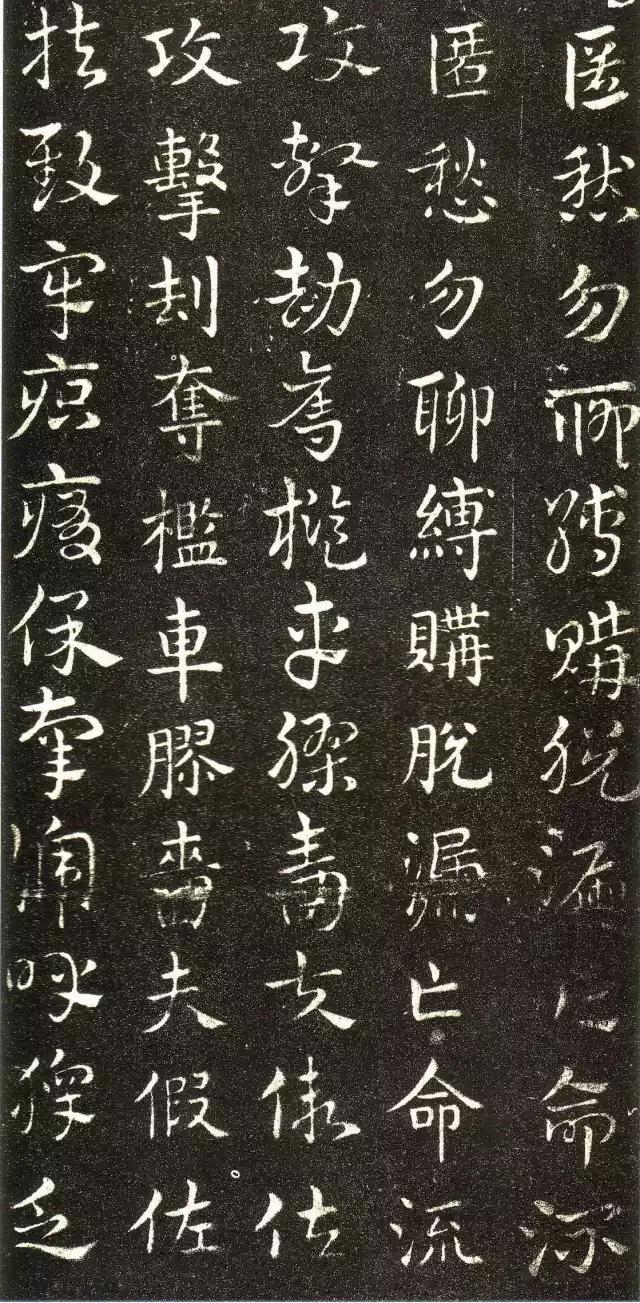 匿愁勿聊縛購脫漏亡命流
匿愁勿聊縛購脫漏亡命流
攻擊劫奪檻車膠嗇夫假佐
攻擊刦奪檻車膠嗇夫假佐
扶致牢疻痏保辜啼呼獋乏